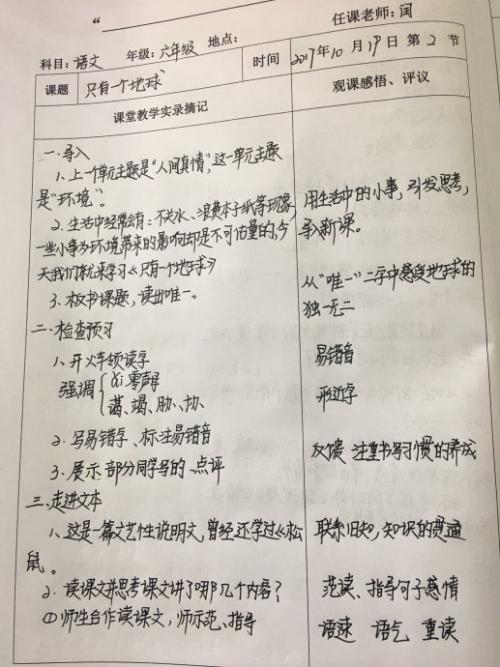 “
任课老师：闰
科目：语文 年级：六年级 地点：
课题 只有一个地球 时间 2017年10月19日第2节
课堂教学实录摘记 观课感悟、评议
一.导入
1.上一个单元主题是“人间真情”，这一单元主题
是“环境”。
2.生活中经常会有：不关水、浪费本子纸等现象
一些小事为环境带来的影响却是不可估量的，今
天我们就来学习《只有一个地球》
3.板书课题，读出唯一。
用生活中的小事，引发思考，
导入新课。
从“唯一”二字中感受地球的
独一无二
二.检查预习
1.开火车领读字
强调 ǎi 零声母
谒、竭、胁、协、
2.写易错字、标注易错音
3.展示部分同学写的 点评
易错音
形近字
反馈 注重书写习惯的养成
三.走进文本
1.这是一篇文艺性说明文，曾经还学过《松
鼠。
2.读课文并思考课文讲了哪几个内容？
①师生合作读课文，师示范、指导
联系旧知，知识的贯通
范读、指导句子感情
语速 语气 重读